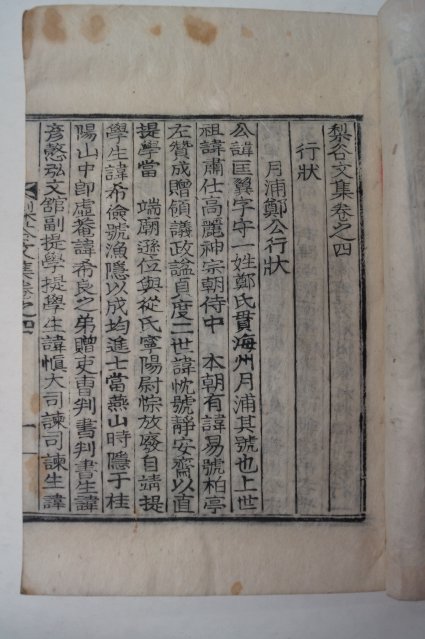 梨谷文集卷之四
行狀
月浦鄭公行狀
公諱匡翼字守一姓鄭氏貫海州月浦其號也上世
祖諱肅仕高麗神宗朝侍中 本朝有諱易號柏亭
左贊成贈領議政諡貞度二世諱忱號靜安齋以直
提學當 端廟遜位與從氏寧陽尉悰放廢自靖提
學生諱希儉號漁隱以成均進士當燕山時隱于桂
陽山中卽虛菴諱希良之弟贈吏曹判書判書生諱
彦慤弘文館副提學提學生諱愼大司諫司諫生諱
梨谷文集卷之四 一